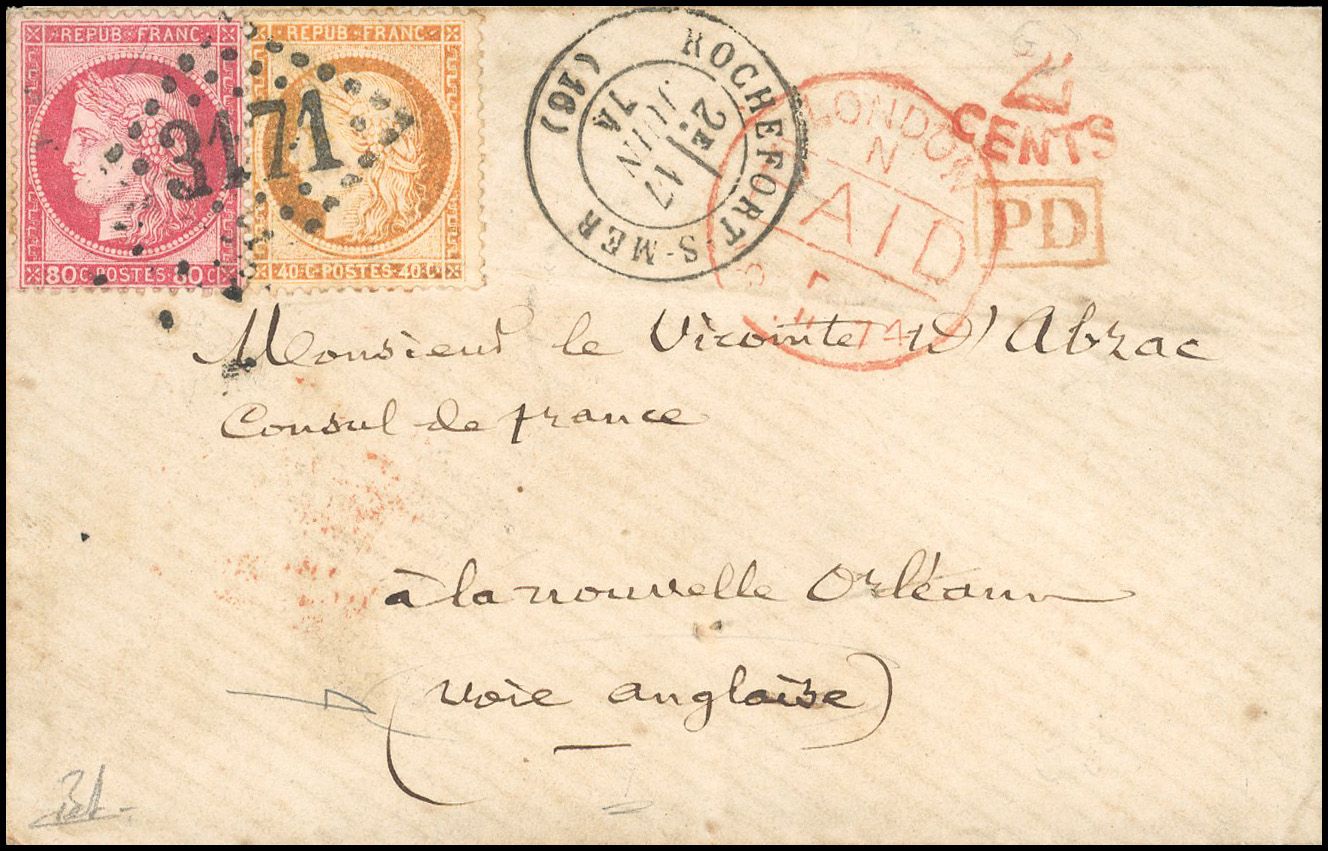 REPUB FRANC
80 C POSTES 80 C
REPUB FRANC
40 C POSTES 40 C
3171
ROCHEFORT-S-MER (16)
2E
17
JUIN
74
LONDON
N
PAID
74
2
CENTS
PD
Monsieur le Vicomte D'Abzac
Consul de france
à la nouvelle Orléans
(voie anglaise)